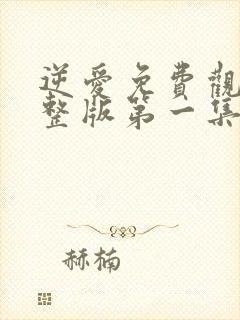 逆愛免費觀
整版第一集
赫楠